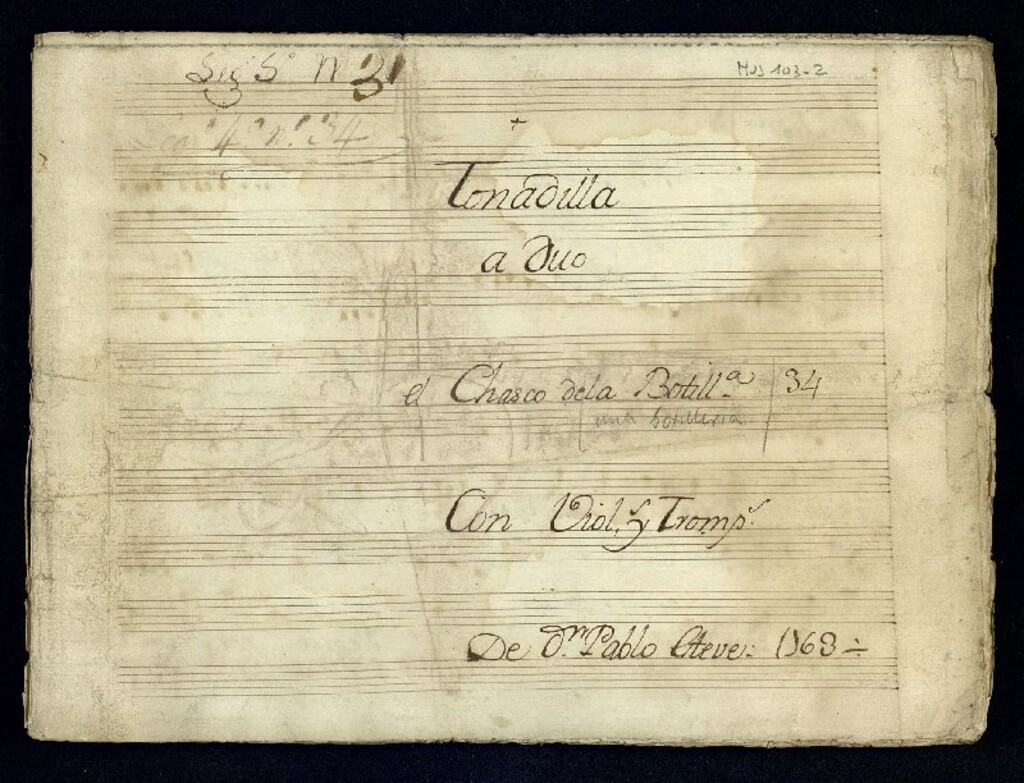 Leg 5º N 31
MUS 103-2
Leg.º 4º n.º 34
Tonadilla
a Duo
el Chasco dela Botill.ª 34
una botilleria
Con Viol.s y Tromp.s
De D.n Pablo Esteve: 1768